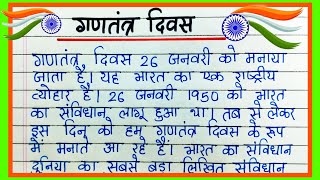 गणतंत्र दिवस
गणतंत्र, दिवस 26 जनवरी को मनाया
जाता है। यह भारत का एक राष्ट्रीय
त्योहार है। 26 जनवरी 1950 को भारत
का संविधान लागू हुआ था। तब से लेकर
इस दिन को हम गणतंत्र दिवस के रूप
में मनाते आ रहे हैं। भारत का संविधान
दुनिया का सबसे बड़ा लिखित संविधान